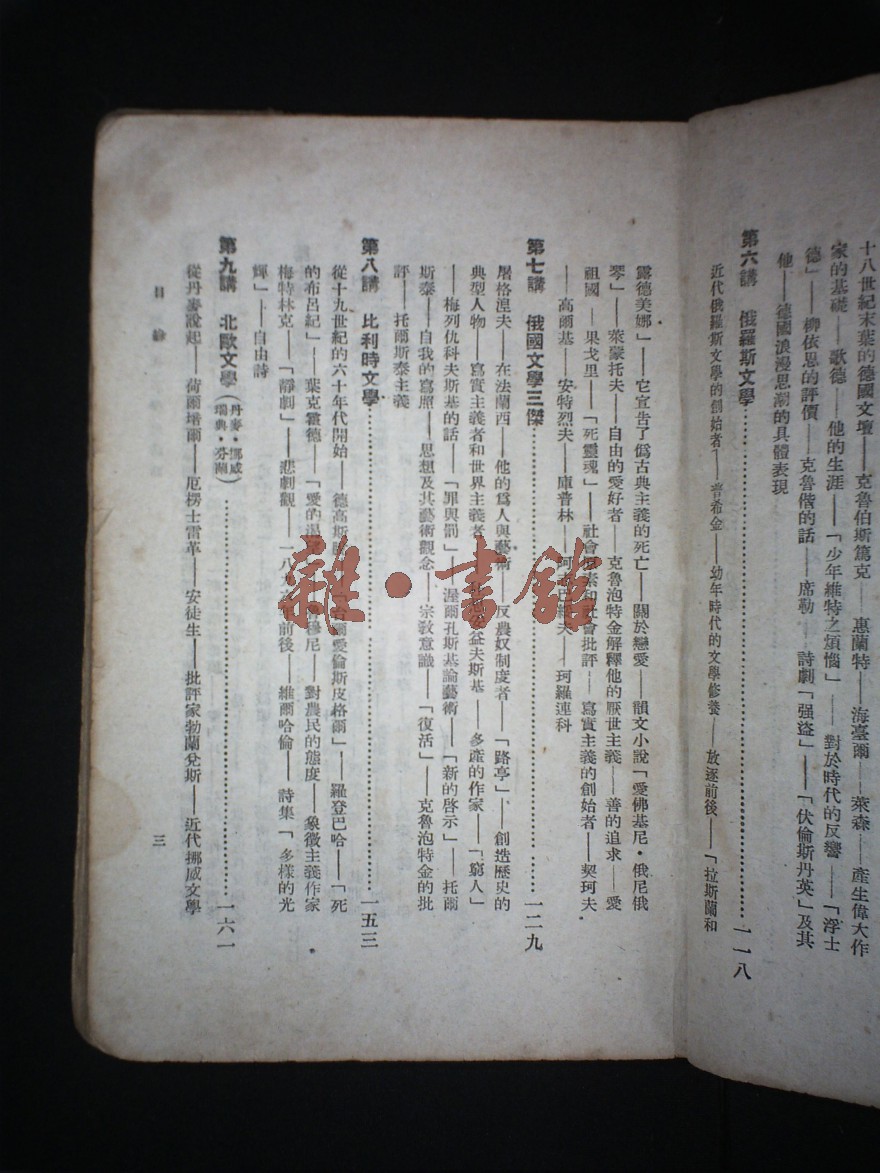 十八世紀末葉的德國文壇——克魯伯斯篤克——惠蘭特——海臺爾——萊森——產生偉大作
家的基礎——歌德——他的生涯——「少年維特之煩惱」——對於時代的反響——「浮士
德」——柳依恩的評價——克魯偕的話——席勒——詩劇「强盜」——「伏倫斯丹英」及其
他——德國浪漫思潮的具體表現
第六講 俄羅斯文學……一一八
近代俄羅斯文學的創始者——普希金——幼年時代的文學修養——放逐前後——「拉斯蘭和
露德美娜」——它宣告了僞古典主義的死亡——關於戀愛——韻文小說「愛佛基尼・俄尼俄
琴」——萊蒙托夫——自由的愛好者——克魯泡特金解釋他的厭世主義——善的追求——愛
祖國——果戈里——「死靈魂」——社會 素和社會批評——寫實主義的創始者——契珂夫
——高爾基——安特烈夫——庫普林—— 夫——珂羅連科
第七講 俄國文學三傑……一二九
屠格涅夫——在法蘭西——他的爲人與藝術——反農奴制度者——「路亭」——創造歷史的
典型人物——寫實主義者和世界主義者—— 益夫斯基——多產的作家——「窮人」
——梅列仇科夫斯基的話——「罪與罰」——渥爾孔斯基論藝術——「新的啓示」——托爾
斯泰——自我的寫照——思想及其藝術觀念——宗敎意識——「復活」——克魯泡特金的批
評——托爾斯泰主義
第八講 比利時文學……一五三
從十九世紀的六十年代開始——德高斯 ——「 爾愛倫斯皮格爾」——羅登巴哈——「死
的布呂紀」——葉克霍德——「愛的 穆尼——對農民的態度——象徵主義作家
梅特林克——「靜劇」——悲劇觀——一八九 年前後——維爾哈倫——詩集「多樣的光
輝」——自由詩
第九講 北歐文學（丹麥・挪威瑞典・芬蘭）……一六一
從丹麥說起——荷爾堪爾——厄楞士雷革——安徒生——批評家勃蘭兌斯——近代挪威文學
目錄
三
雜・書館